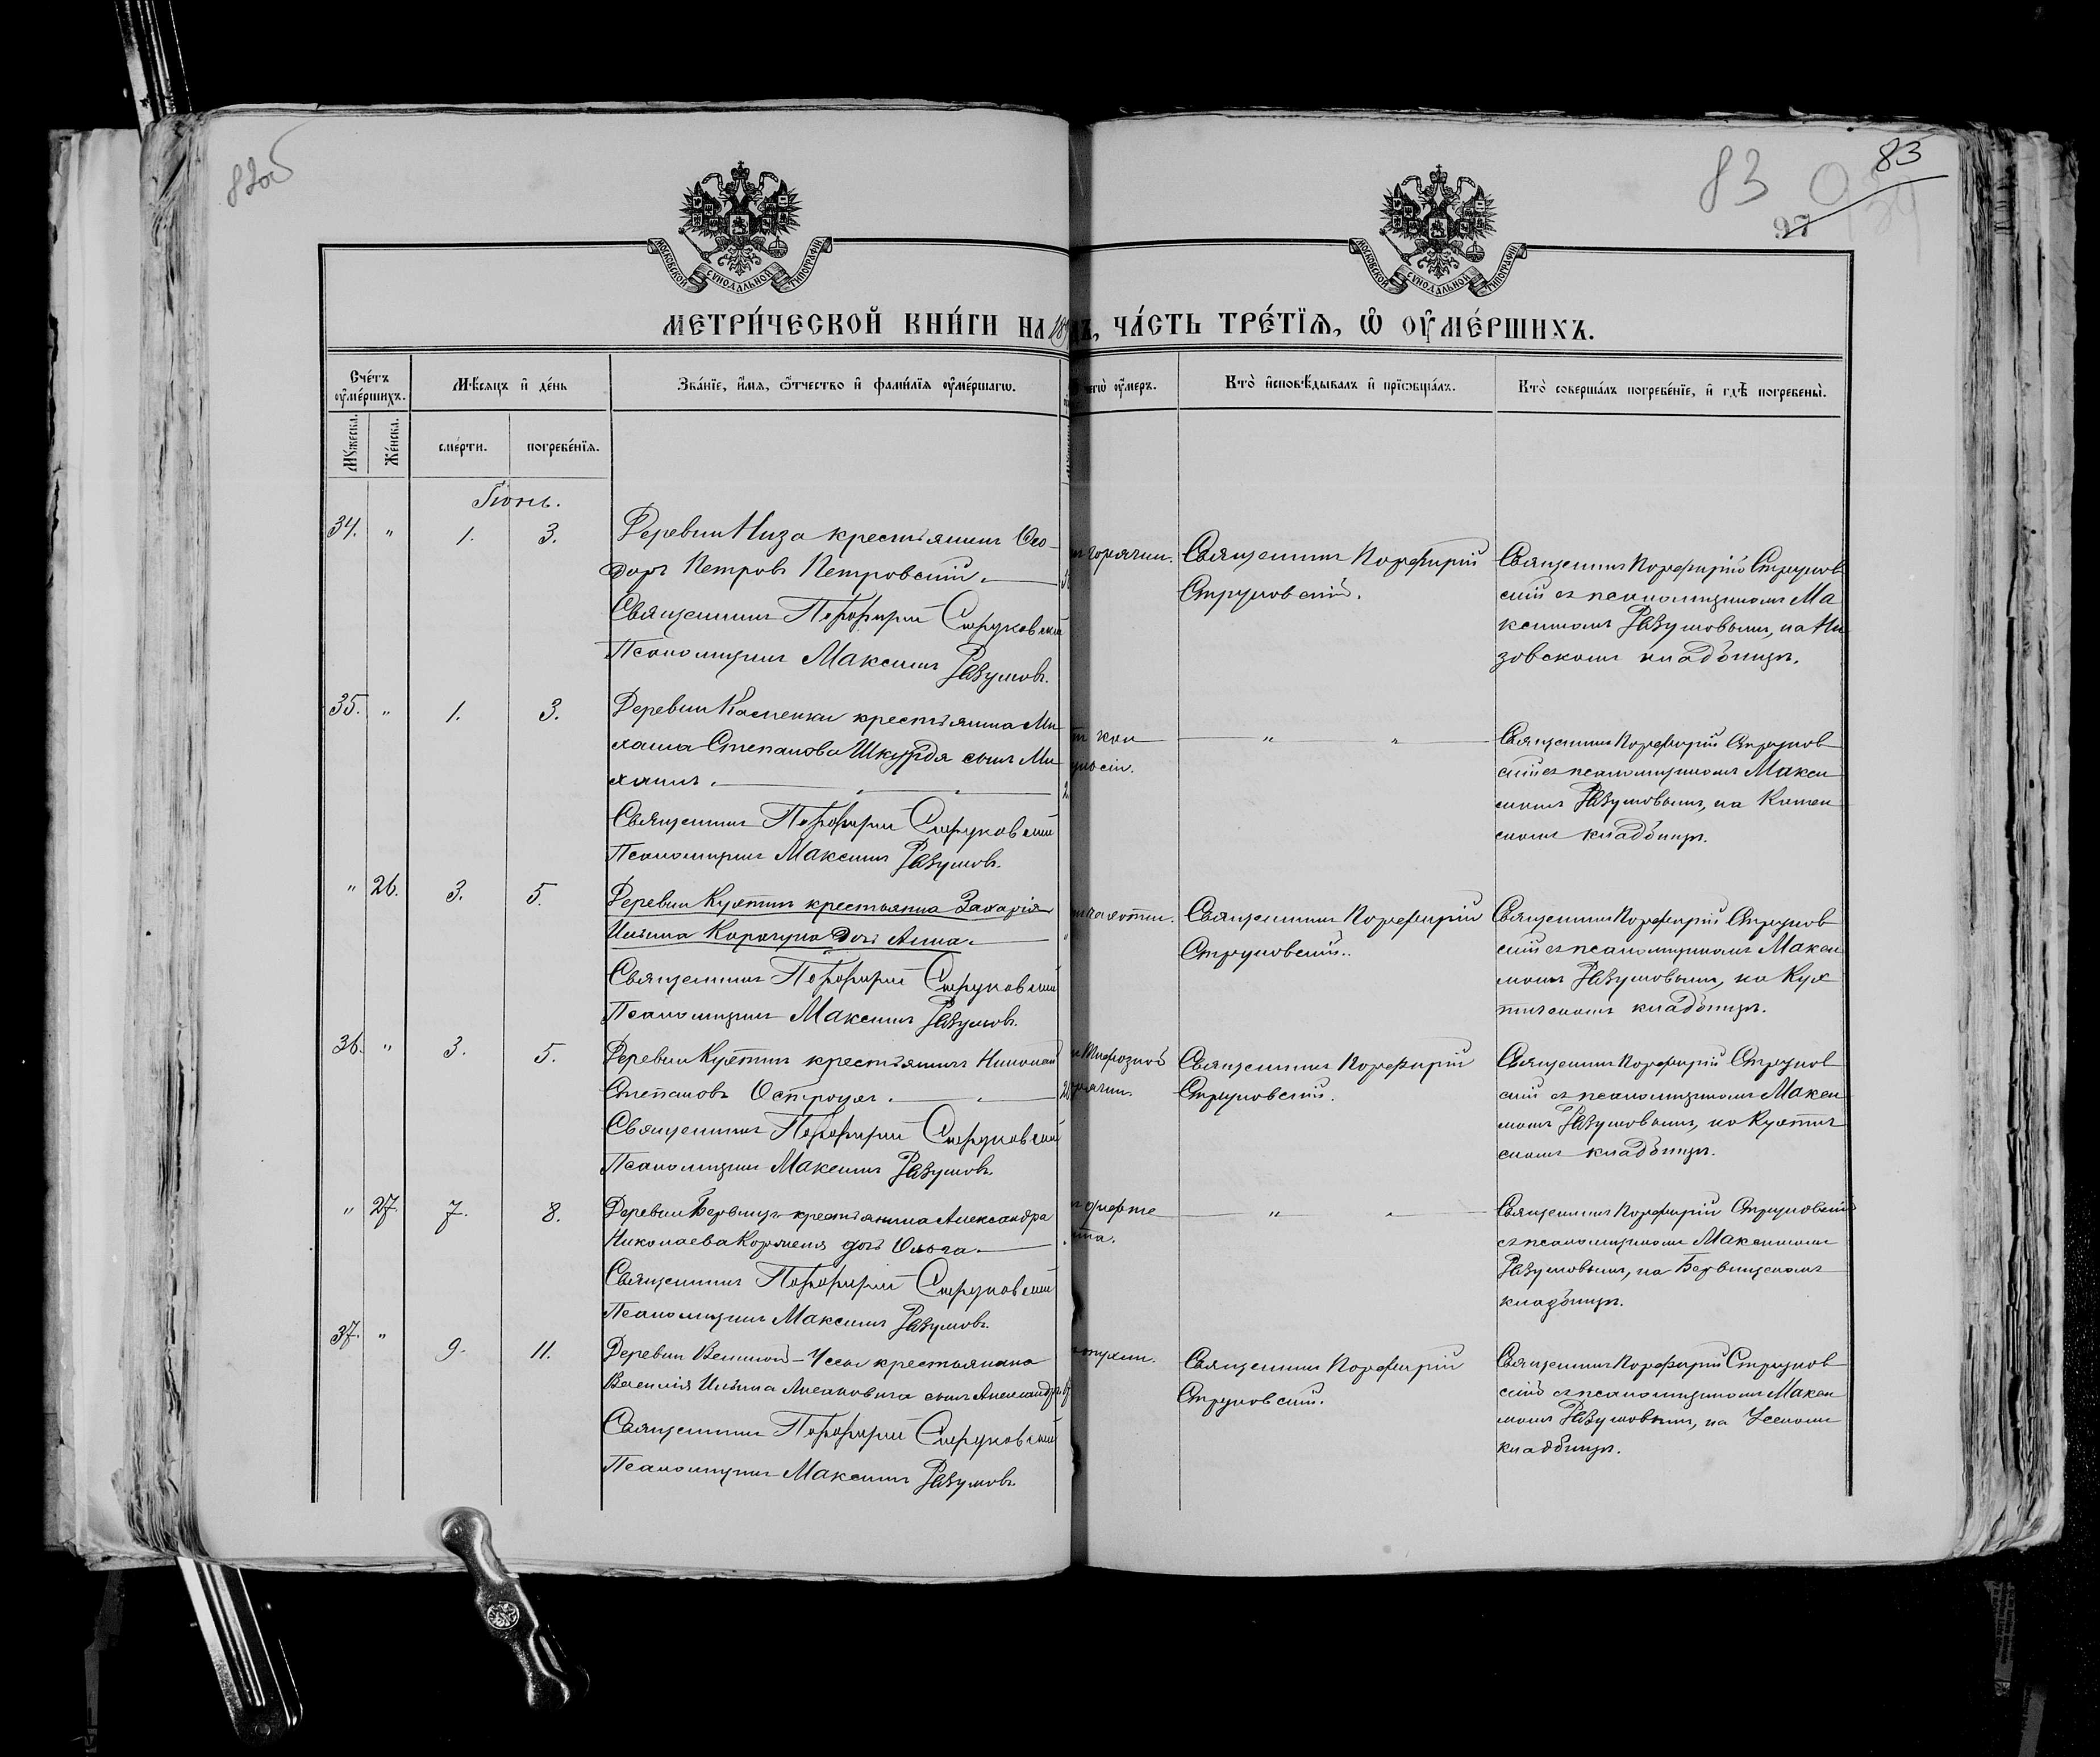 82об
83
83
97
МОСКОВСКОЙ СѴНОДАЛЬНОЙ ТИПОГРАФІИ
МОСКОВСКОЙ СѴНОДАЛЬНОЙ ТИПОГРАФІИ
МЕТРИ́ЧЕСКОЙ КНИ́ГИ НА 18
Ъ, ЧА́СТЬ ТРЕ́ТЇѦ, Ѡ҆ ОУ҆МЕ́РШИХЪ.
Сче́тъ оу҆ме́ршихъ.
Мѣ́сѧцъ и҆ де́нь
Зва́нїе, и҆́мѧ, ѻ҆́тчество и҆ фами́лїѧ оу҆ме́ршагѡ.
чегѡ̀ оу҆́меръ.
Кто̀ и҆сповѣ́дывалъ и҆ прїѡбща́лъ.
Кто̀ соверша́лъ погребе́нїе, и҆ гдѣ̀ погребены̀.
Мꙋ́жеска.
Же́нска.
сме́рти.
погребе́нїѧ.
Іюнь.
34. " 1. 3.
Деревни Низа крестьянинъ Ѳео-
доръ Петровъ Петровскій.
Священникъ Порфирій Струковскій
Псаломщикъ Максимъ Разумовъ.
горячки.
Священникъ Порфирій
Струковскій.
Священникъ Порфирій Струков
скій съ псаломщикомъ Ма
ксимомъ Разумовымъ, на Ни
зовскомъ кладбищѣ.
35. " 1. 3.
Деревни крестьянина Ми
хаила Степанова Шкурдя сынъ Ми
хаилъ.
Священникъ Порфирій Струковскій
Псаломщикъ Максимъ Разумовъ.
" "
Священникъ Порфирій Струков
скій съ псаломщикомъ Макси
момъ Разумовымъ, на
скомъ кладбищѣ.
" 26. 3. 5.
Деревни Кухтичъ крестьянина Захарія
Ильина Карачуна дочь Анна.
Священникъ Порфирій Струковскій
Псаломщикъ Максимъ Разумовъ.
чахотки.
Священникъ Порфирій
Струковскій.
Священникъ Порфирій Струков
скій съ псаломщикомъ Макси
момъ Разумовымъ, на Кух
тичскомъ кладбищѣ.
36. " 3. 5.
Деревни Кухтичъ крестьянинъ Николай
Степановъ Остроухъ.
Священникъ Порфирій Струковскій
Псаломщикъ Максимъ Разумовъ.
тифозной
рячки.
Священникъ Порфирій
Струковскій.
Священникъ Порфирій Струков
скій съ псаломщикомъ Макси
момъ Разумовымъ, на Кухтич
скомъ кладбищѣ.
" 27. 7. 8.
Деревни крестьянина Александра
Николаева дочь Ольга.
Священникъ Порфирій Струковскій
Псаломщикъ Максимъ Разумовъ.
дифте
ита.
" "
Священникъ Порфирій Струковскій
съ псаломщикомъ Максимомъ
Разумовымъ, на
кладбищѣ.
37. " 9. 11.
Деревни Великой-Уссы крестьянина
Василія Ильина сынъ Александръ
Священникъ Порфирій Струковскій
Псаломщикъ Максимъ Разумовъ.
Священникъ Порфирій
Струковскій.
Священникъ Порфирій Струков
скій съ псаломщикомъ Макси
момъ Разумовымъ, на
кладбищѣ.